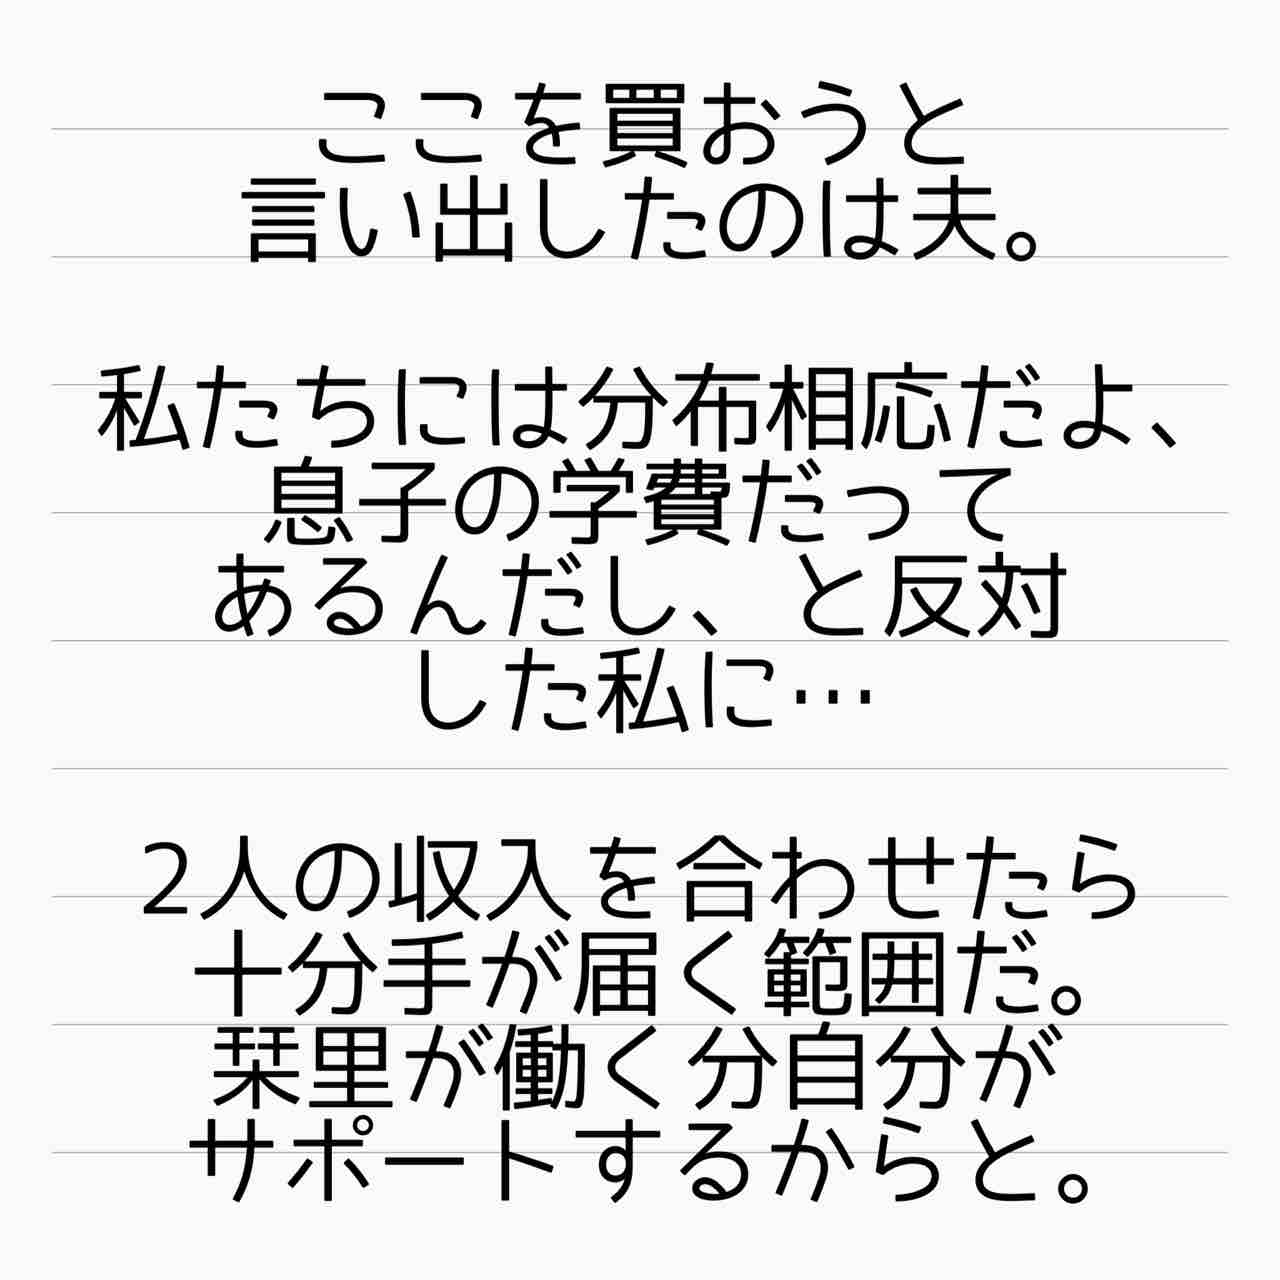 ここを買おうと
言い出したのは夫。
私たちには分布相応だよ、
息子の学費だって
あるんだし、と反対
した私に…
2人の収入を合わせたら
十分手が届く範囲だ。
栞里が働く分自分が
サポートするからと。